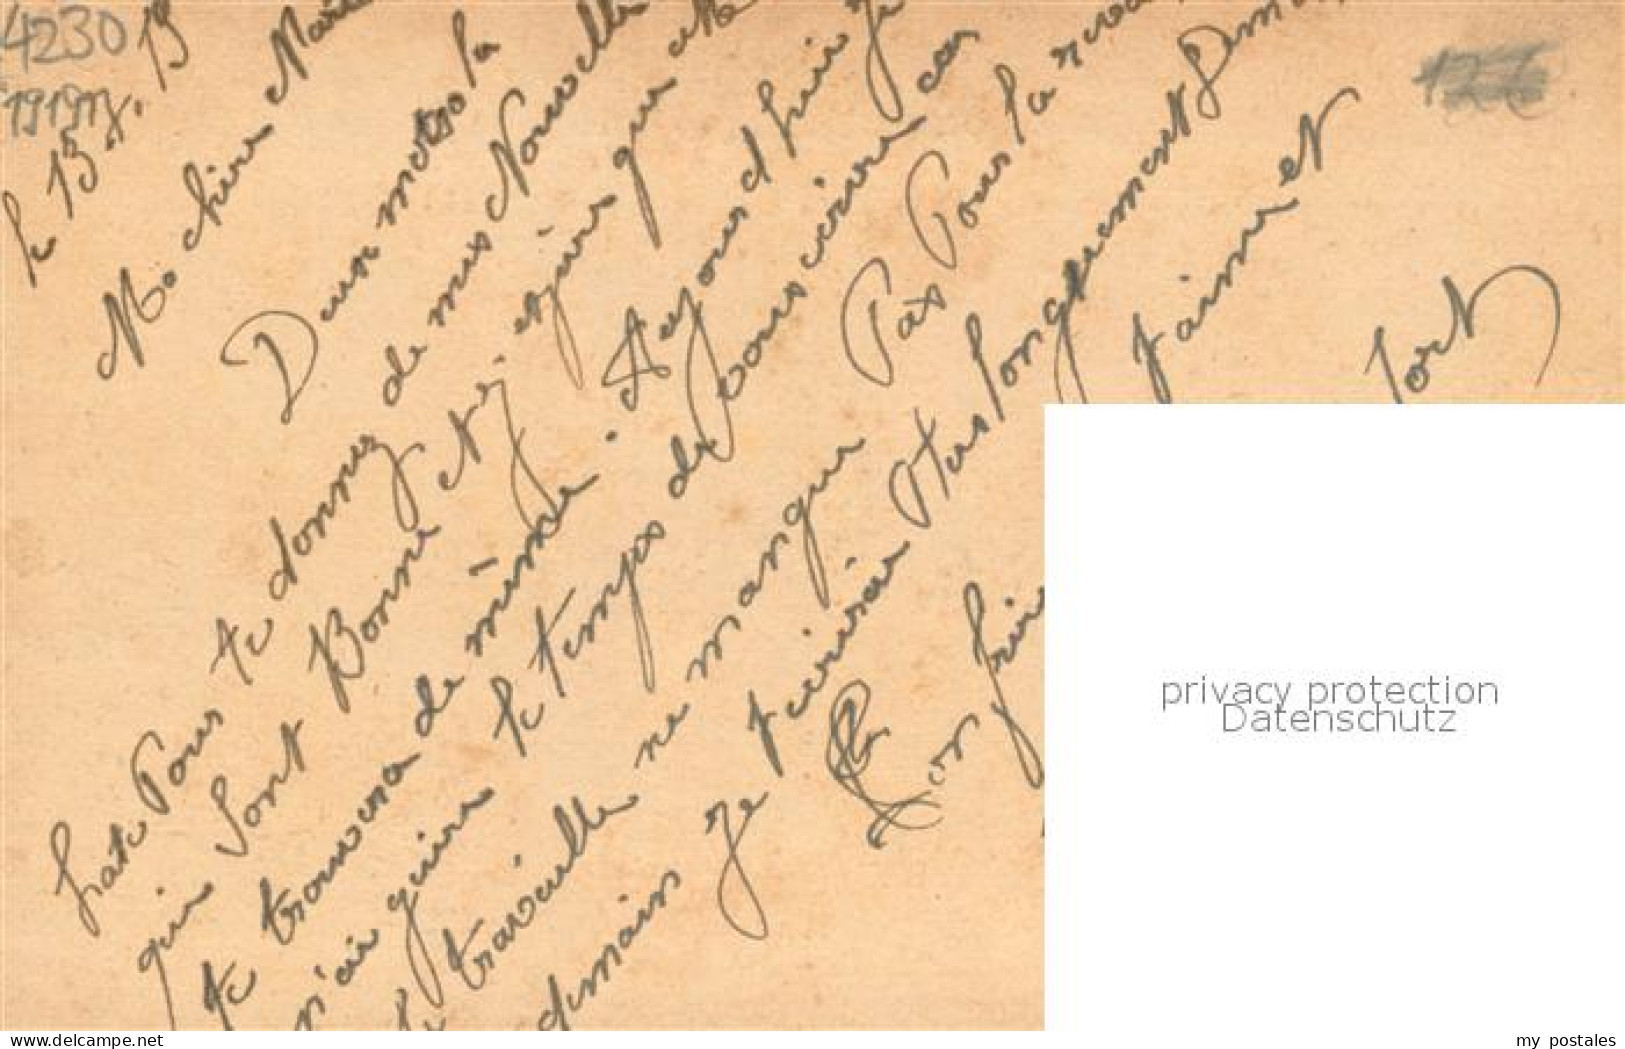 4230
19197
le 13. 7. 19
Ma chère Marie
Deux mots à la
hate Pour te donnez de mes Nouvelle
qui Sont Bonne et j'espère que cette
te trouvera de même. Aujourd'hui Je
n'ai guère le temps de vous écrire car
le travaille ne manque Pas Pour la
demain Je t'écrirai Plus longuement
Ton frère
t'aime et
fort
126
privacy protection
Datenschutz
www.delcampe.net
my_postales